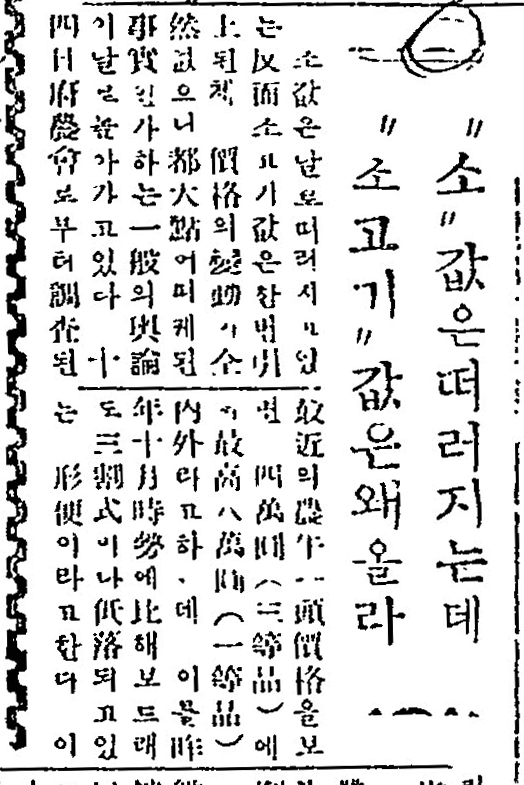 "소"값은떠러지는데
"소고기"값은왜올라
소값은날로떠러지고있
는反面소고기값은한번引
上된채 價格의變動이全
然없으니 都大體어떠케된
事實인가하는一般의輿論
이날로높아가고있다 十
四日府農會로부터調査된
最近의農牛一頭價格을보
면 四萬圓(三等品)에
서最高八萬圓(一等品)
內外라고하는데 이를昨
年十月時勢에比해보드래
도三割式이나低落되고있
는 形便이라고한다 이